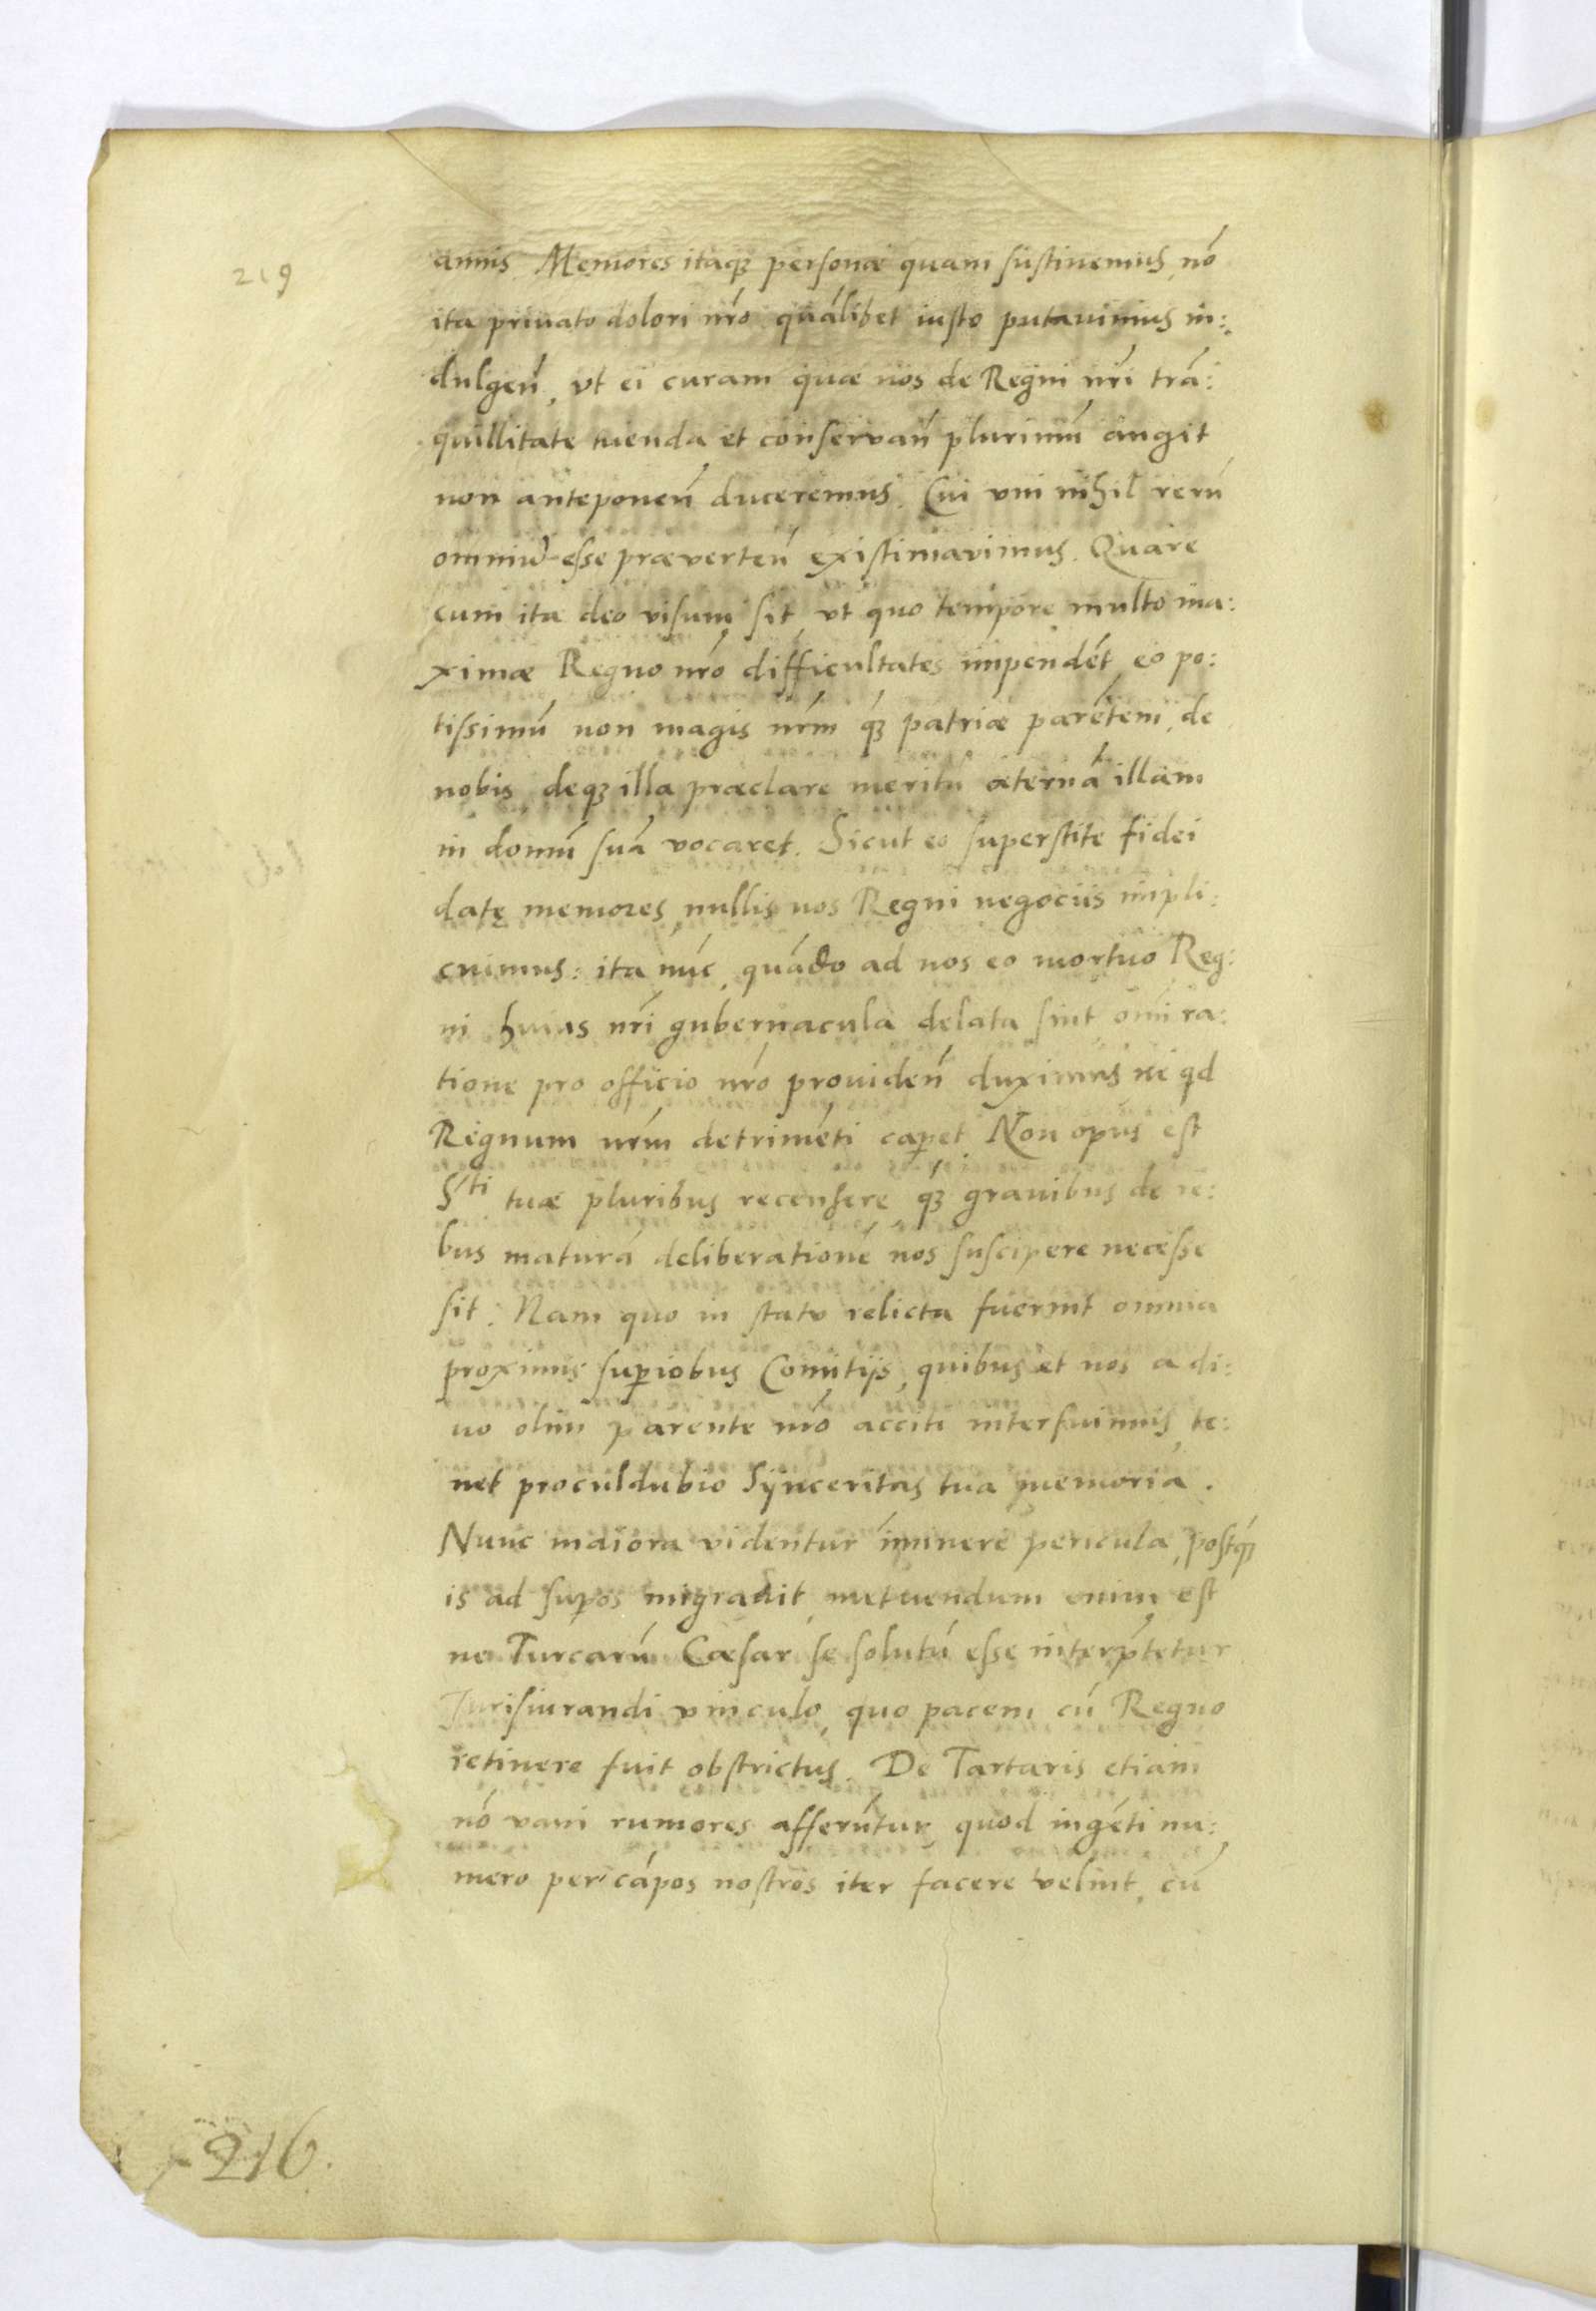 219
annis. Memores itaqʒ personæ quam sustinemus, nō
ita priuato dolori nr̄o quālibet iusto putavimus in:
dulgen̄, vt ei curam quæ nos de Regni nr̄i trā:
quillitate tuenda et conservan̄ plurimū angit
non anteponen̄ duceremus. Cui vni nihil rerū
omniū esse præverten̄ existimavimus. Quare
cum ita deo visum sit, vt quo tempore multo ma:
ximæ Regno nr̄o difficultates impendēt, eo po:
tissimū non magis nr̄m qʒ patriæ parētem, de
nobis deqʒ illa præclare meritū æternā illam
in domū suā vocaret. Sicut eo superstite fidei
datę memores nullis nos Regni negociis impli:
cuimus: ita nūc, quādo ad nos eo mortuo Reg:
ni huius nr̄i gubernacula delata sint, om̄i ra:
tione pro officio nr̄o providen̄ duximus ne qd
Regnum nr̄m detrimēti caperet. Non opus est
S^ti tuæ pluribus recensere qʒ grauibus de re:
bus maturā deliberationē nos suscipere necesse
sit. Nam quo in statu relicta fuerint omnia
proximis superiobus Comitijs, quibus et nos a di:
uo olim parente nr̄o acciti interfuimus, te:
net proculdubio Synceritas tua memoriā.
Nunc maiora videntur iminere pericula, postqʒ
is ad superos migravit, metuendum enim est
ne Turcarū Cæsar se solutū esse interp̄tetur
Jurisiurandi vinculo, quo pacem cū Regno
retinere fuit obstrictus. De Tartaris etiam
nō vani rumores afferūtur, quod ingēti nu:
mero per cāpos nostros iter facere velint, cū
216.